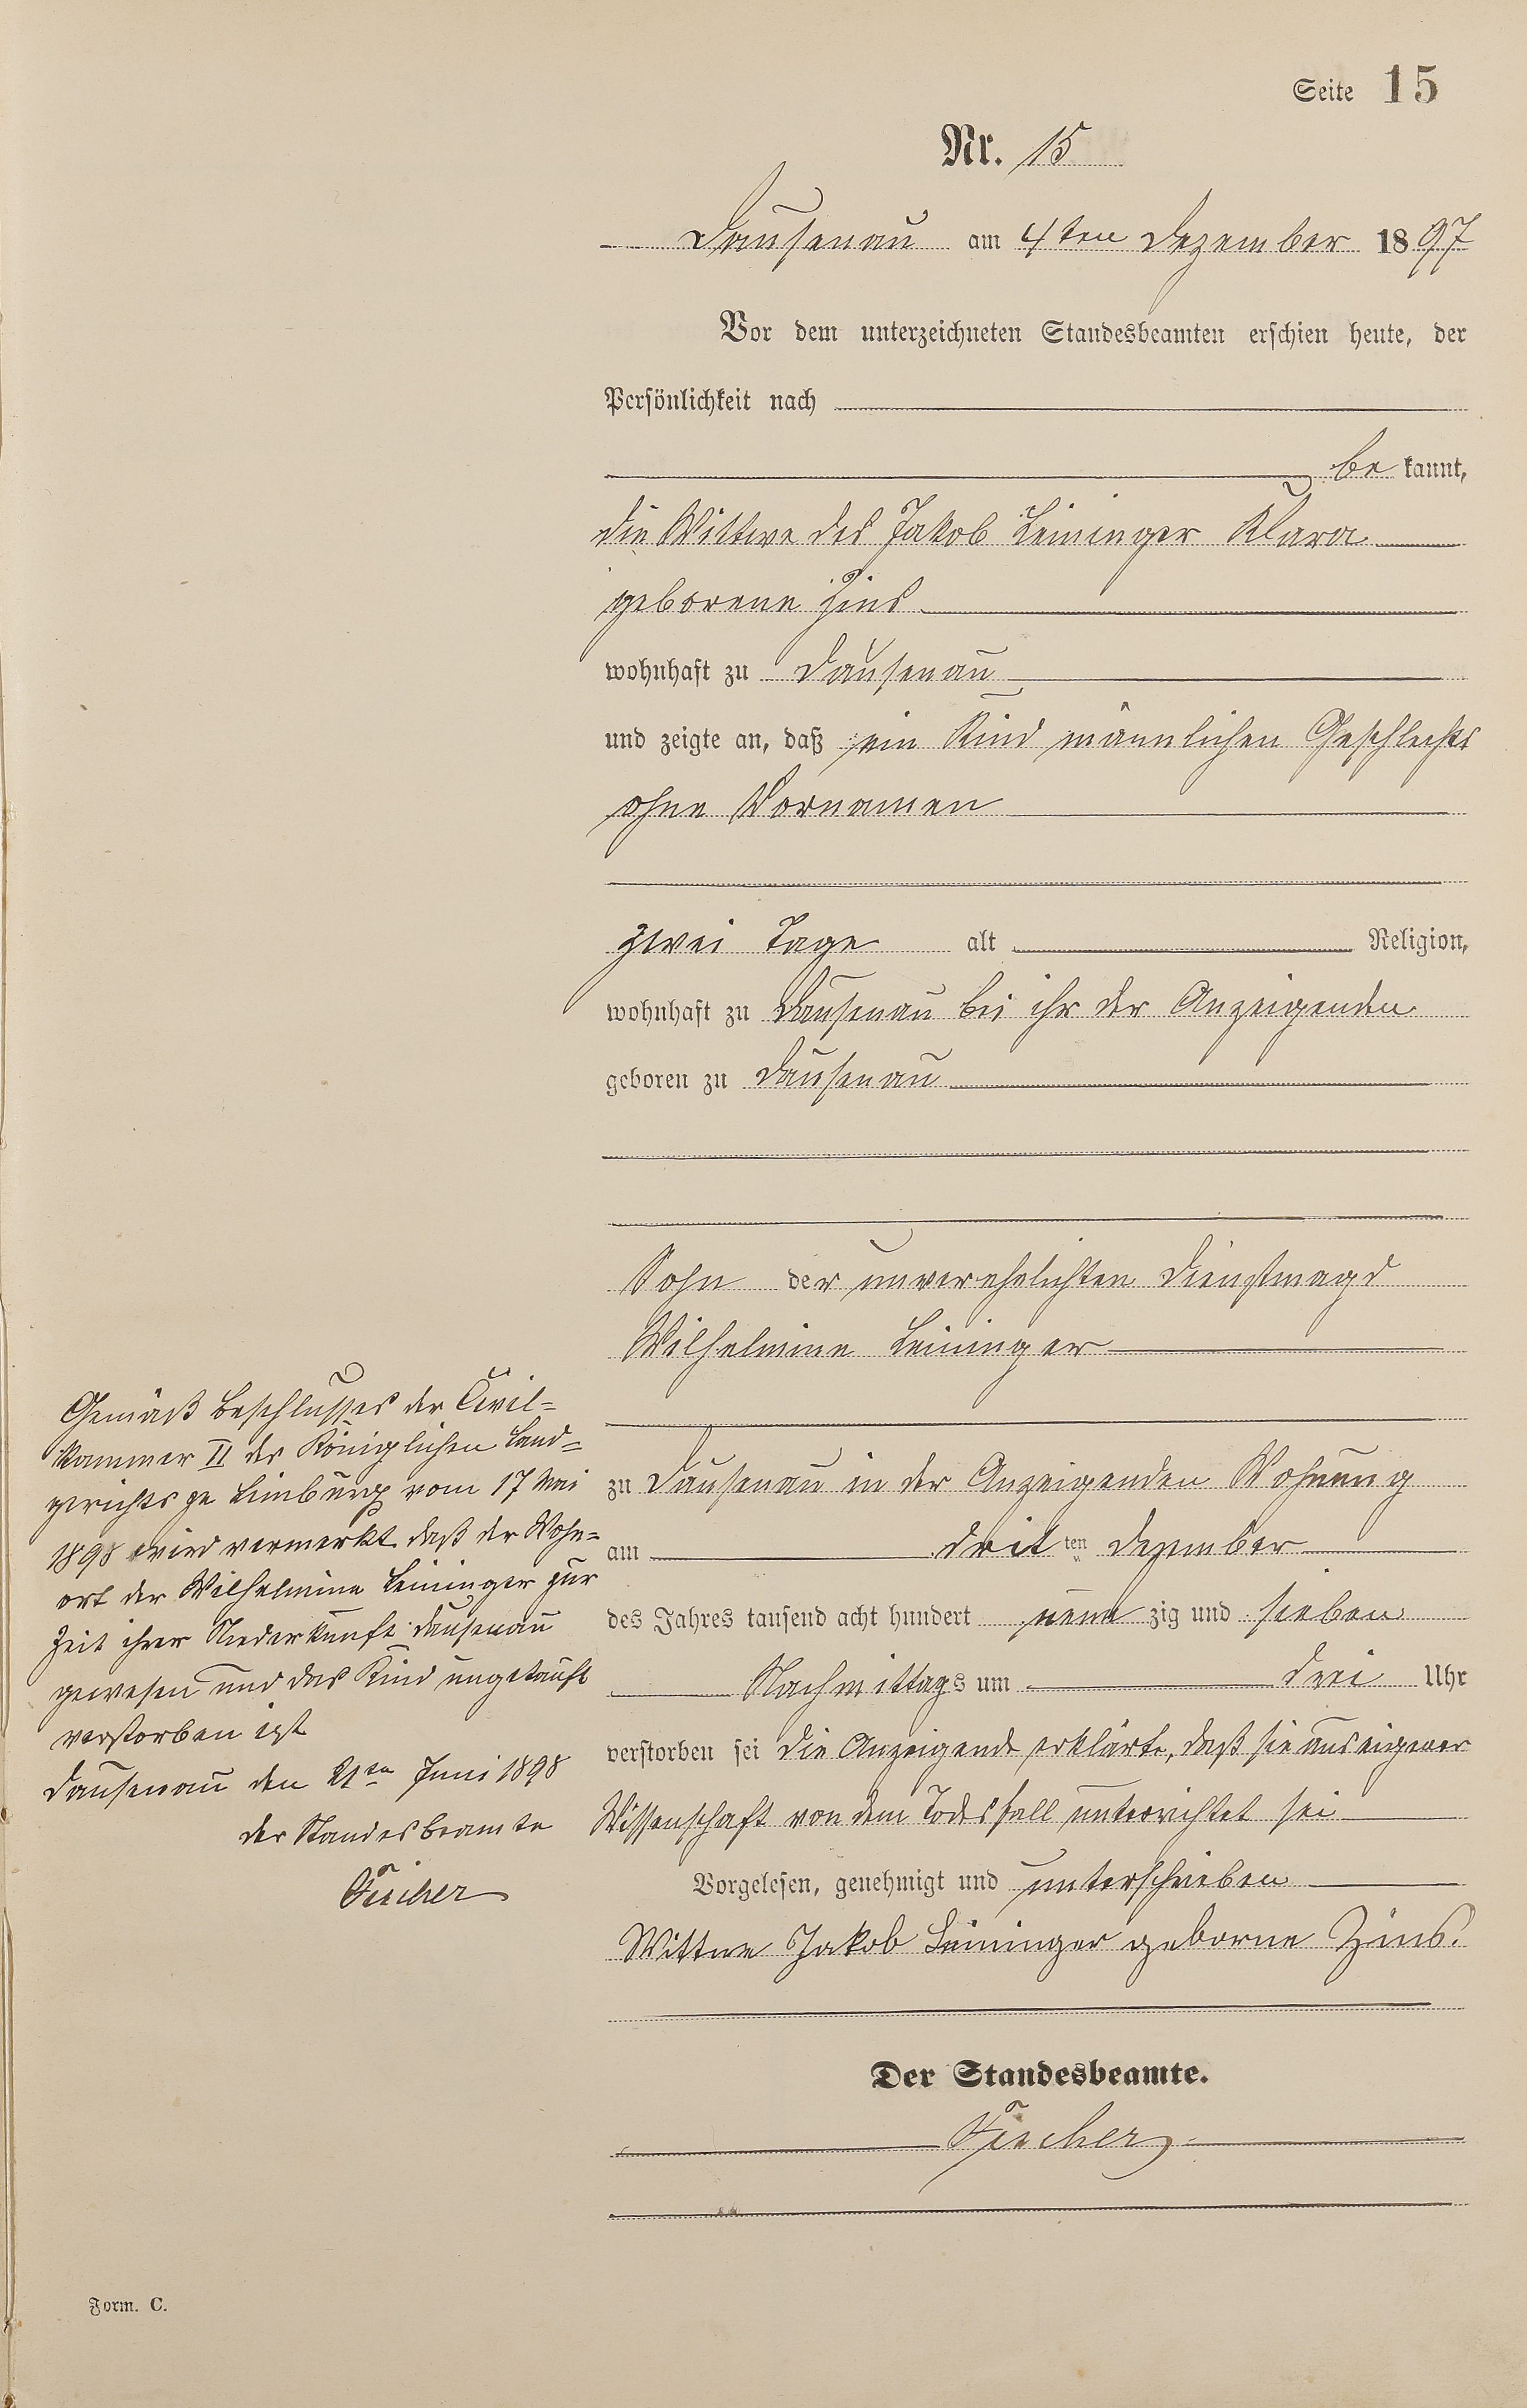 Seite 15
Nr. 15
Dausenau am 4ten Dezember 1897
Vor dem unterzeichneten Standesbeamten erschien heute, der
Persönlichkeit nach
bekannt,
die Wittwe des Jakob Leininger Klara
geborene Zins
wohnhaft zu Dausenau
und zeigte an, daß ein Kind männlichen Geschlechts
ohne Vornamen
zwei Tage alt Religion,
wohnhaft zu Dausenau bei ihr der Anzeigenden
geboren zu Dausenau
Sohn der unverehelichten Dienstmagd
Wilhelmine Leininger
zu Dausenau in der Anzeigenden Wohnung
am dritten Dezember
des Jahres tausend acht hundert neun zig und sieben
Nachmittags um drei Uhr
verstorben sei die Anzeigende erklärte, daß sie aus eigener
Wissenschaft von dem Todesfall unterrichtet sei
Vorgelesen, genehmigt und unterschrieben
Wittwe Jakob Leininger geborne Zins.
Der Standesbeamte.
Fischer
Gemäß Beschlusses der Civil-
kammer II des Königlichen Land-
gerichts zu Limburg vom 17 Mai
1898 wird vermerkt daß der Wohn-
ort der Wilhelmine Leininger zur
Zeit ihrer Niederkunft Dausenau
gewesen und das Kind ungetauft
verstorben ist
Dausenau den ten Juni 1898
der Standesbeamte
Fischer
Form. C.